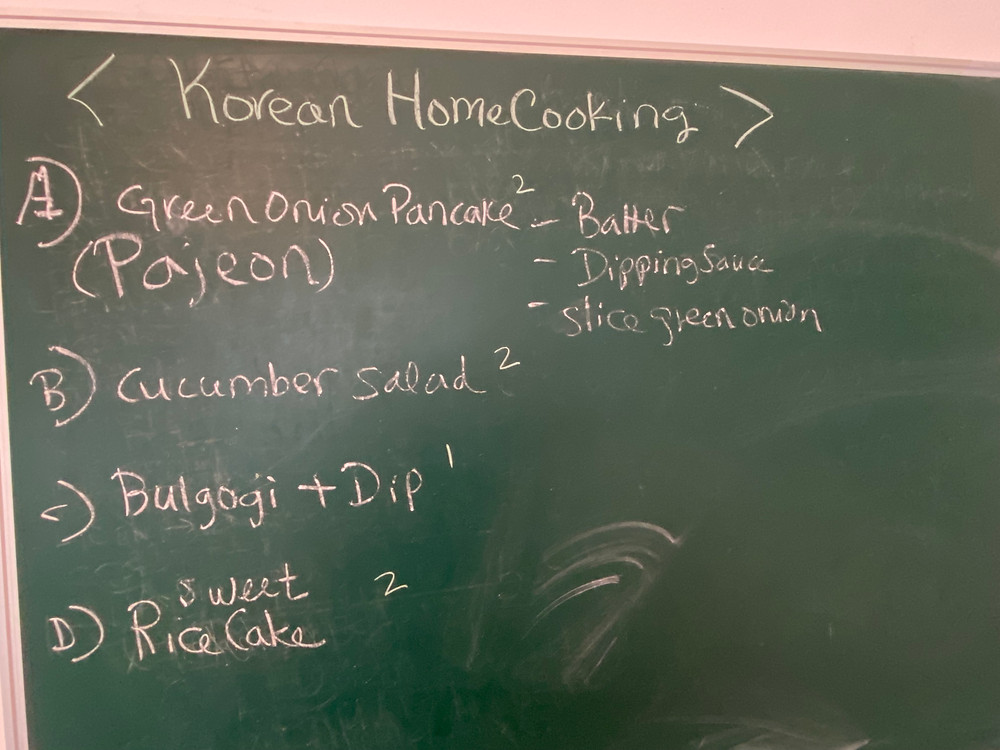 < Korean HomeCooking >
A) Green Onion Pancake ² - Batter
(Pajeon)
- Dipping Sauce
- slice green onion
B) Cucumber Salad ²
C) Bulgogi + Dip ¹
D) Sweet Rice Cake ²